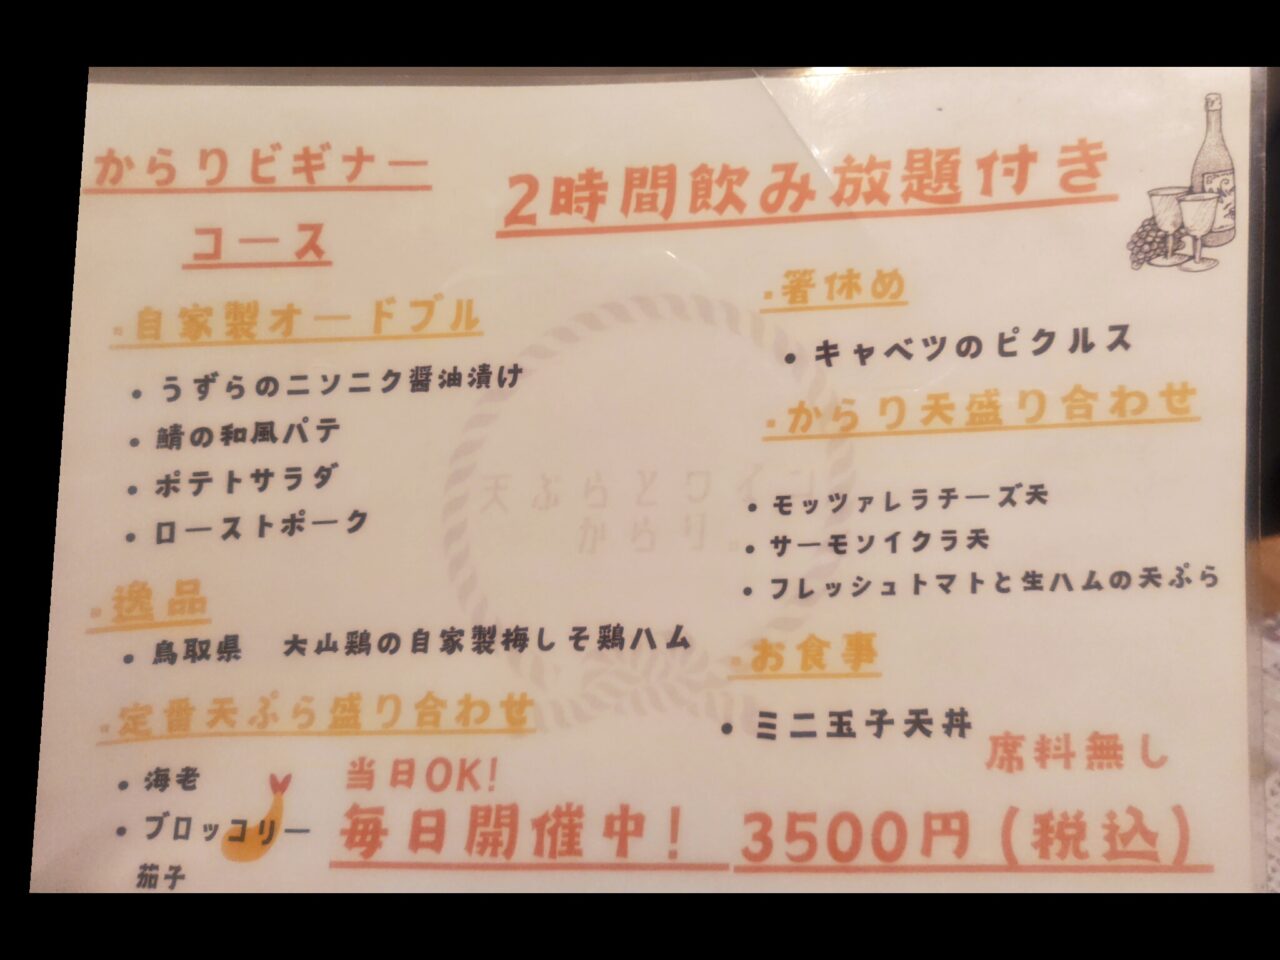 からりビギナー
コース
2時間飲み放題付き
・自家製オードブル
• うずらのニンニク醤油漬け
• 鯖の和風パテ
• ポテトサラダ
• ローストポーク
・逸品
• 鳥取県　大山鶏の自家製梅しそ鶏ハム
・定番天ぷら盛り合わせ
• 海老
• ブロッコリー
茄子
・箸休め
• キャベツのピクルス
・からり天盛り合わせ
• モッツァレラチーズ天
• サーモンイクラ天
• フレッシュトマトと生ハムの天ぷら
・お食事
• ミニ玉子天丼
席料無し
当日OK!
毎日開催中!
3500円(税込)
天ぷらとワイン
からり。